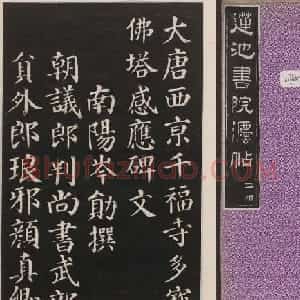 蓮池書院灋帖
大唐西亰千福寺多寶
佛塔感應碑文
南陽岑勛撰
朝議郎判尚書武部
貟外郎琅邪顏真卿